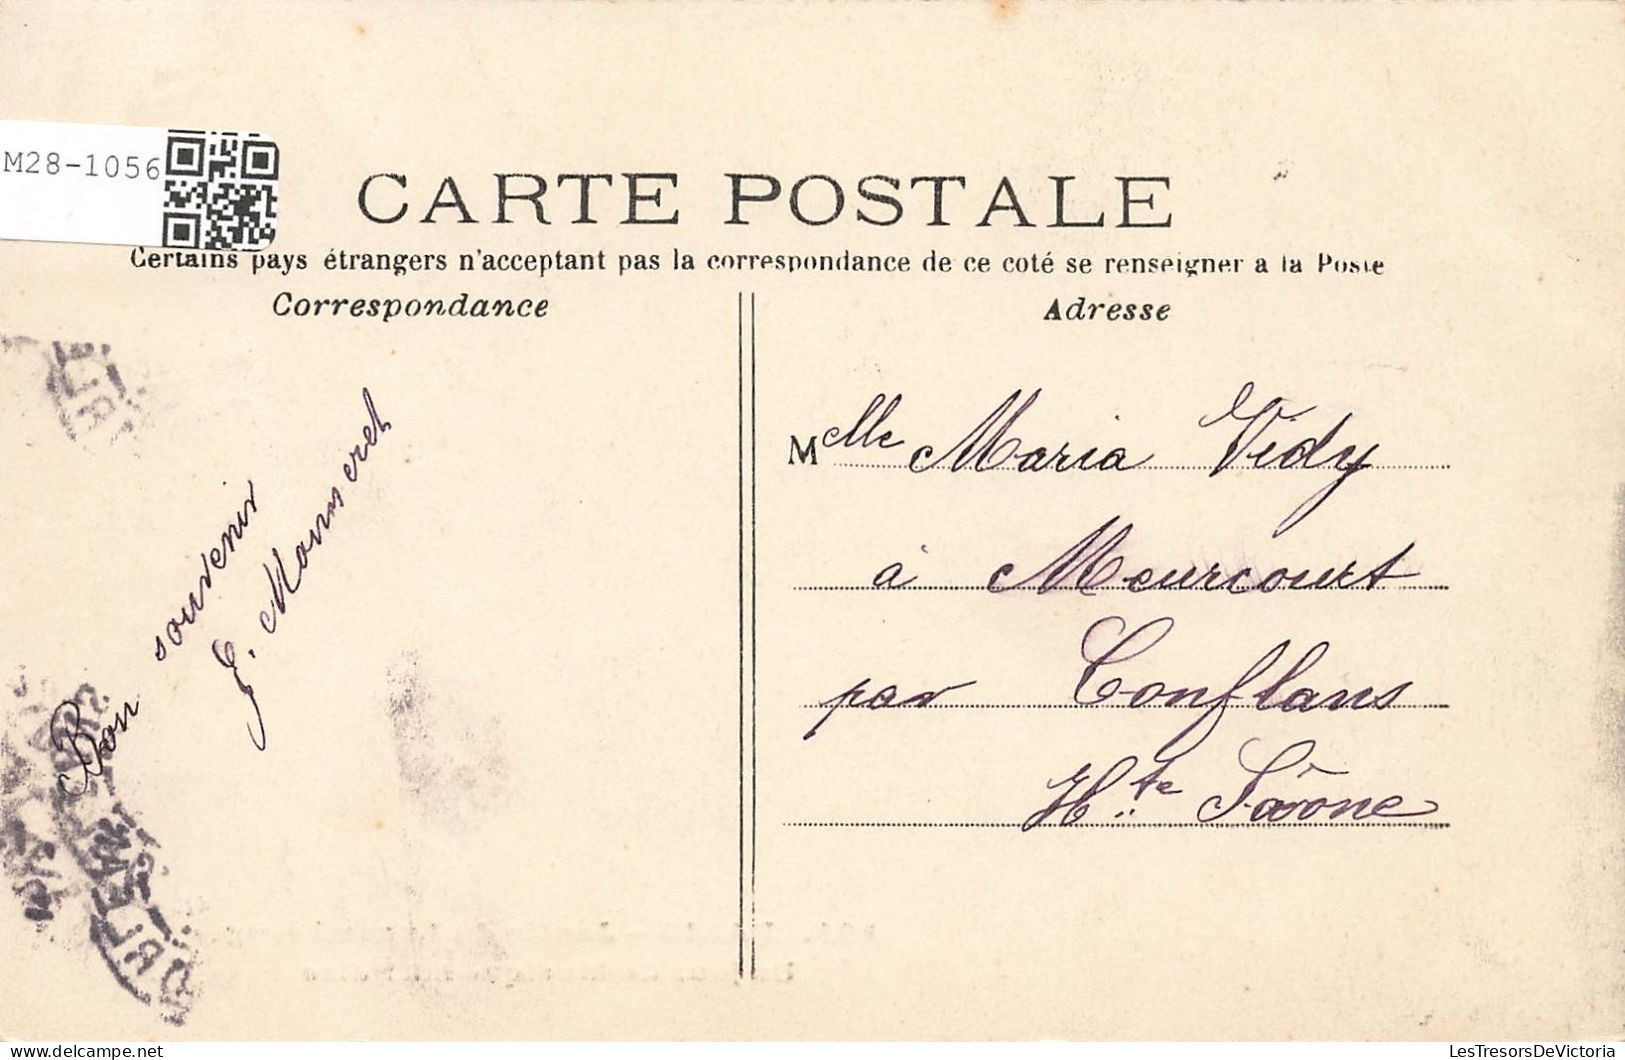 M28-1056
CARTE POSTALE
Certains pays étrangers n'acceptant pas la correspondance de ce coté se renseigner a la Poste
Correspondance
Adresse
Bon souvenir
E. Mounseret
Melle Maria Vidy
à Meurcourt
par Conflans
Hte Saône
LesTresorsDeVictoria